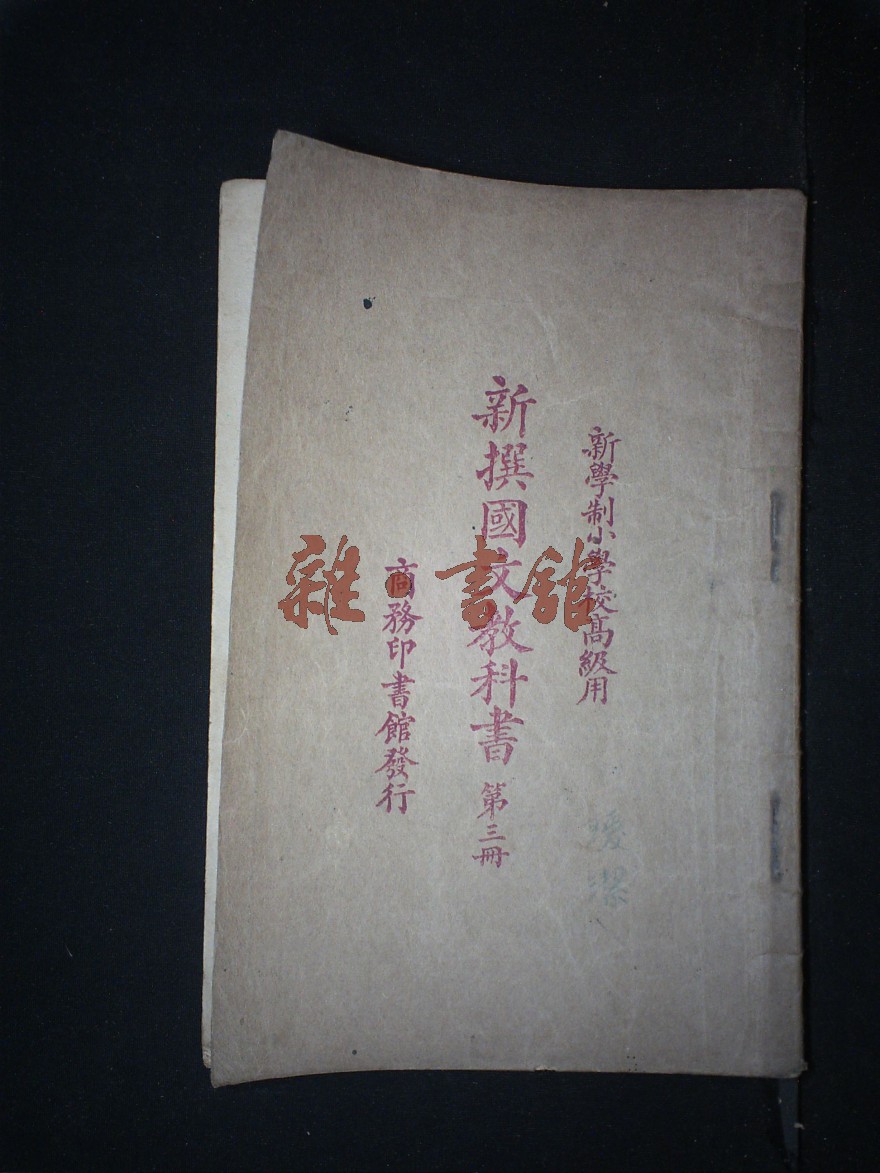 新學制小學校高級用
新撰國文教科書 第三冊
商務印書館發行
雜·書館